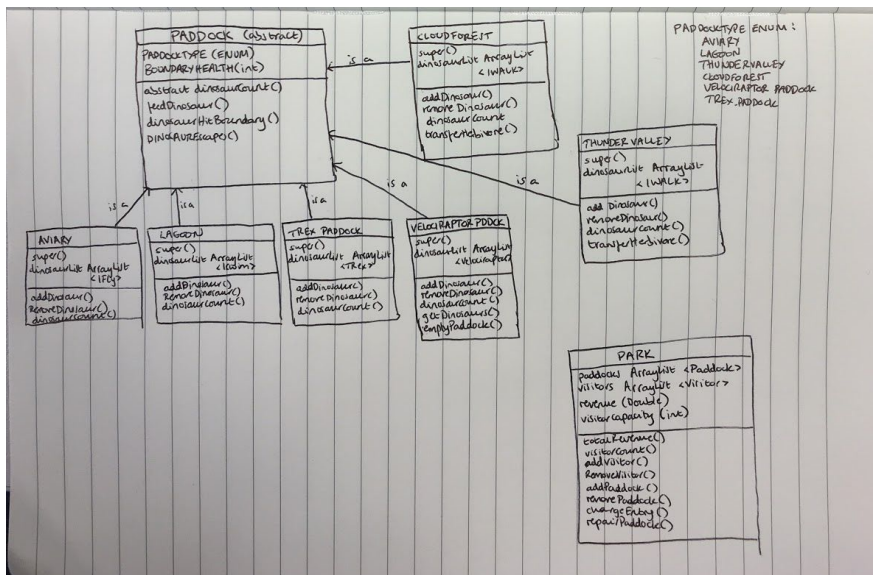 PADDOCK (abstract)
PADDOCKTYPE (ENUM)
BOUNDARYHEALTH(int)
abstract dinosaurCount()
feedDinosaur()
dinosaurHitBoundary()
DINOSAURESCAPE()
is a
CLOUDFOREST
super()
dinosaurList ArrayList
<IWALK>
addDinosaur()
remove Dinosaur()
dinosaurcount
transferHerbivore()
PADDOCKTYPE ENUM :
AVIARY
LAGOON
THUNDERVALLEY
CLOUDFOREST
VELOCIRAPTOR PADDOCK
TREX.PADDOCK
THUNDER VALLEY
super()
dinosaurList ArrayList
<IWALK>
add Dinosaur()
removeDinosaur()
dinosaurCount()
transferHerbivore()
is a
is a
is a
is a
is a
AVIARY
super()
dinosaurList ArrayList
<IFly>
addDinosaur()
RemoveDinosaur()
dinosaurCount()
LAGOON
super()
dinosaurList ArrayList
<ISwim>
addDinosaur()
RemoveDinosaur()
dinosaurCount()
TREX PADDOCK
super()
dinosaurList ArrayList
<TRex>
addDinosaur()
removeDinosaur()
dinosaurCount()
VELOCIRAPTOR PDDOCK
super()
dinosaurList ArrayList
<Velociraptor>
addDinosaur()
removeDinosaur()
dinosaurCount()
getDinosaurs()
emptyPaddock()
PARK
paddocks ArrayList <Paddock>
visitors ArrayList <Visitor>
revenue (Double)
visitorcapacity (int)
totalRevenue()
visitorCount()
addVisitor()
RemoveVisitor()
addPaddock()
removePaddock()
chargeEntry()
repairPaddock()